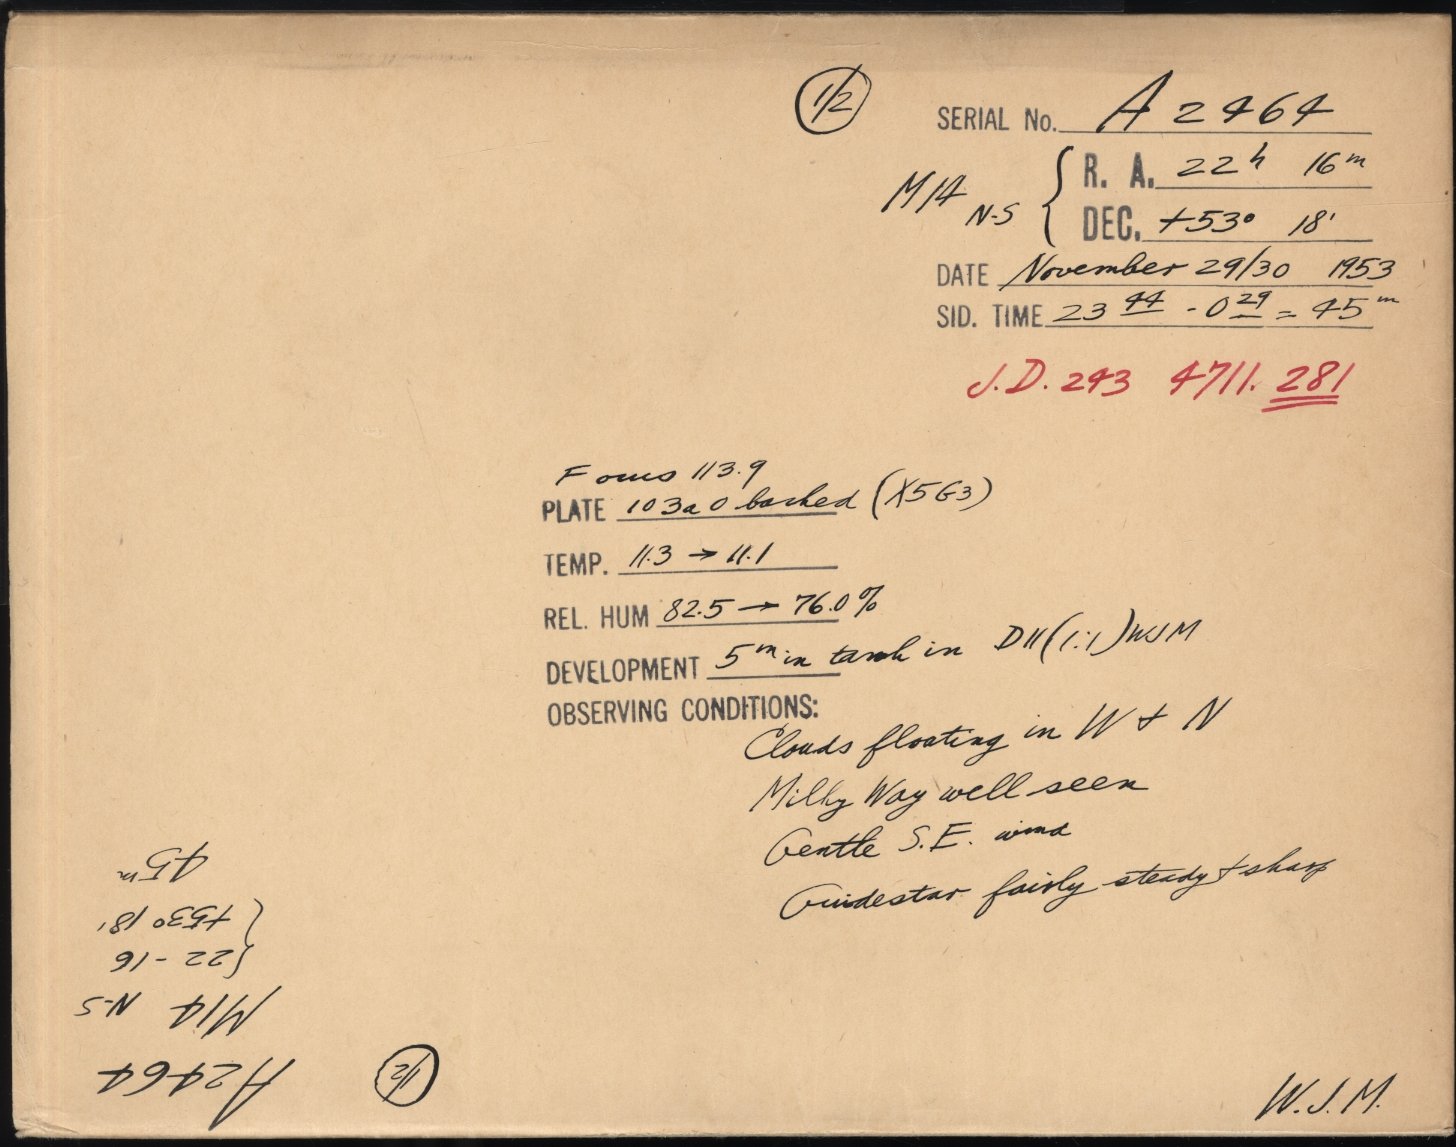 1/2
SERIAL No. A 2464
M14 N-S { R. A. 22h 16m
DEC. +53° 18'
DATE November 29/30 1953
SID. TIME 23 44 - 0 29 = 45m
J.D. 243 4711.281
Focus 113.9
PLATE 103a O backed (X5G3)
TEMP. 11.3 → 11.1
REL. HUM 82.5 → 76.0%
DEVELOPMENT 5m in tank in D11 (1:1) WJM
OBSERVING CONDITIONS:
Clouds floating in W + N
Milky Way well seen
Gentle S.E. wind
Guidestar fairly steady + sharp
W.J.M.
1/2
A2464
M14 N-S
{ 22 - 16
+53° 18'
45m